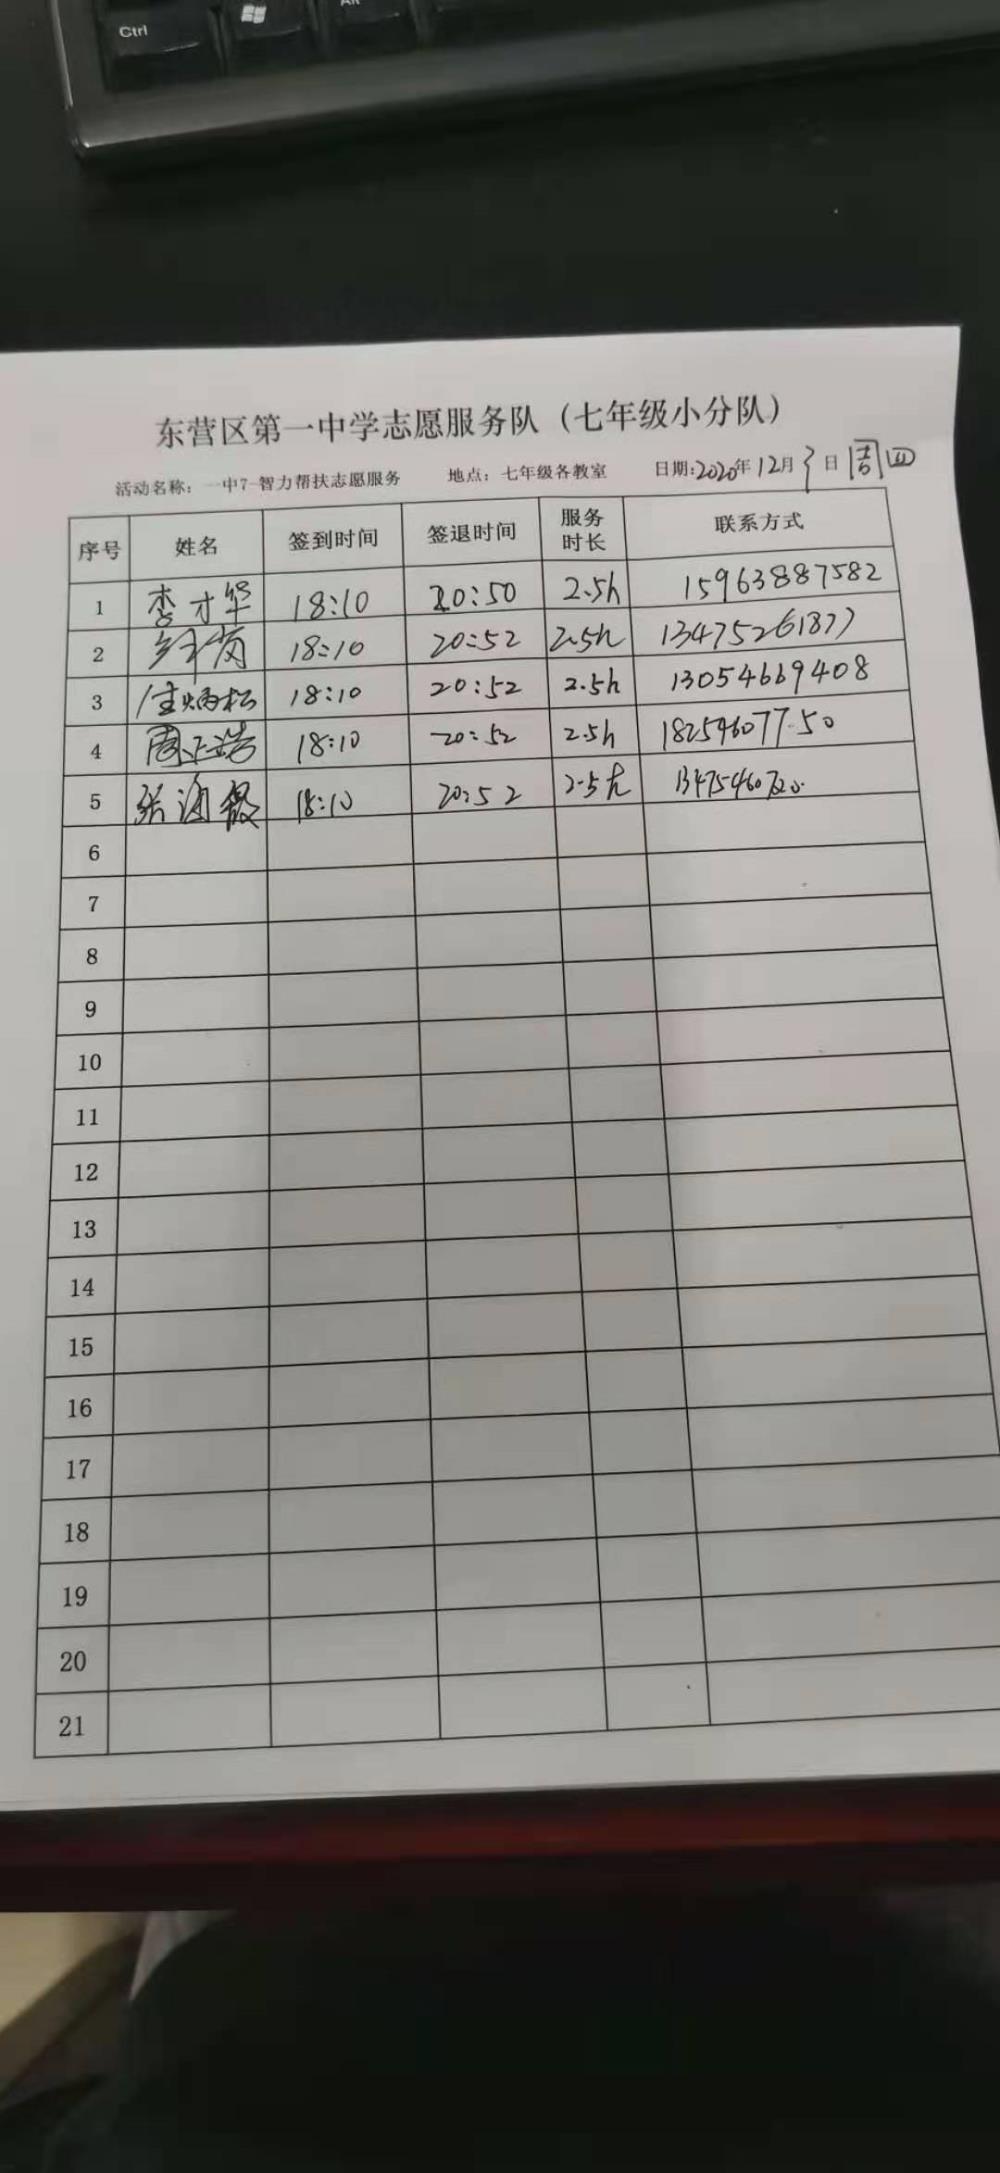 Ctrl
Alt
东营区第一中学志愿服务队（七年级小分队）
活动名称：一中7-智力帮扶志愿服务 地点：七年级各教室 日期:2020年12月3日 周四
序号 姓名 签到时间 签退时间 服务时长 联系方式
1 李才华 18:10 20:50 2.5h 15963887582
2 18:10 20:52 2.5h 13475261877
3 18:10 20:52 2.5h 13054669408
4 周正浩 18:10 20:52 2.5h 18259607750
5 张 18:10 20:52 2.5h
6
7
8
9
10
11
12
13
14
15
16
17
18
19
20
21